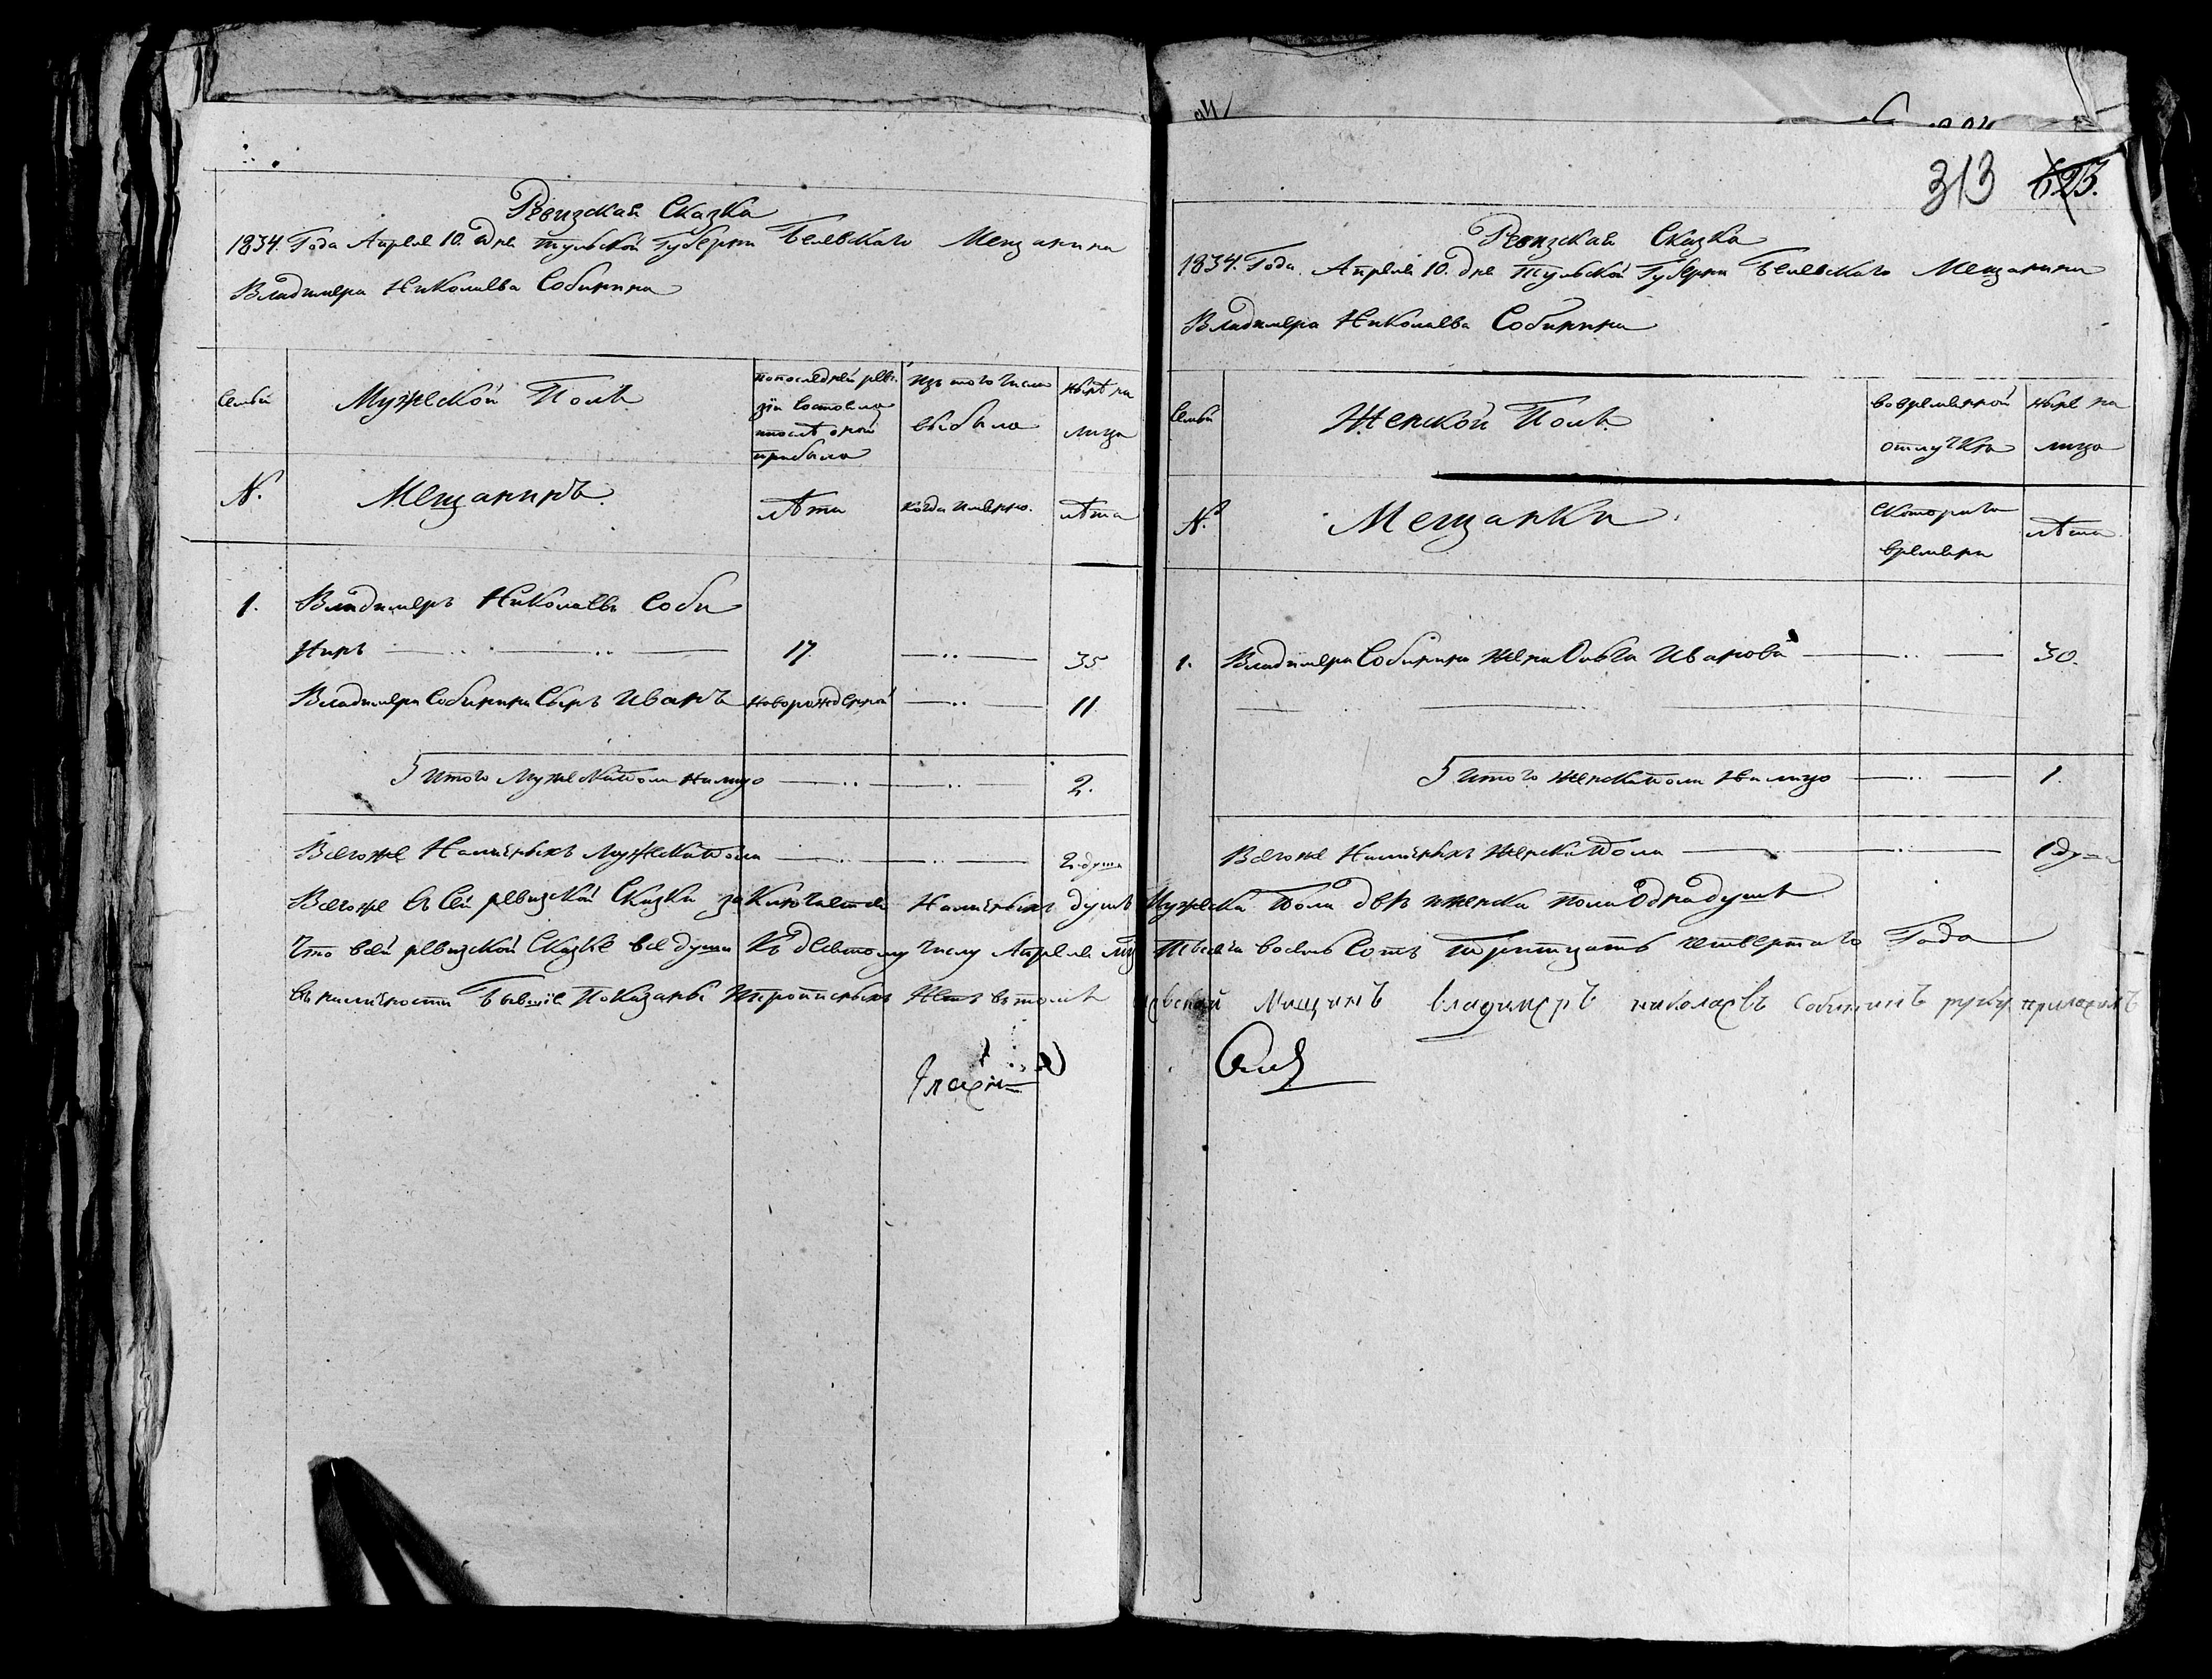 Ревизская Сказка
1834. Года Апреля 10. дня Тульской Губерни Белевскаго Мещанина
Владимера Николаева Собинина
Семьи
Мужеской Полъ
попоследней реви
зіи Состояло
и послѣ оной
прибыло
Изъ того Числа
выбыло
Нынѣ на
лицо
№.
Мещанинъ
лѣта
когда имянно.
лѣта
1. Владимеръ Николаевъ Соби
нинъ 17. 35
Владимера Собинина Сынъ Иванъ Новорожденной 11
Итого Мужескаполи Налицо 2.
Всегоже Наличныхъ Мужескаполи 2. души
313 623.
Ревизская Сказка
1834. Года. Апреля 10. дня Тульской Губерни Белевскаго Мещанина
Владимера Николаева Собинина
Семьи
Женской Полъ
вовременной
отлучки
Ныне на
лицо
№.
Мещанки
Скотораго
времени
лѣта
1. Владимера Собинина жена Ольга Иванова 30.
Итого женскаполи Налицо 1.
Всегоже Наличныхъ женскаполи 1 душа
Всегоже въ Сей ревизской Сказки заключается Наличныхъ душъ Мужеска Поли двѣ женска поли Одна душа
Что всей ревизской Сказке все души Къ девятому числу Апреля Тысеча восемь Сотъ Тритцать четвертаго Года
въ наличности Бывшіе Показаны Прописныхъ Нетъ въ томъ Мещанъ владимеръ николаевъ Собининъ руку приложилъ